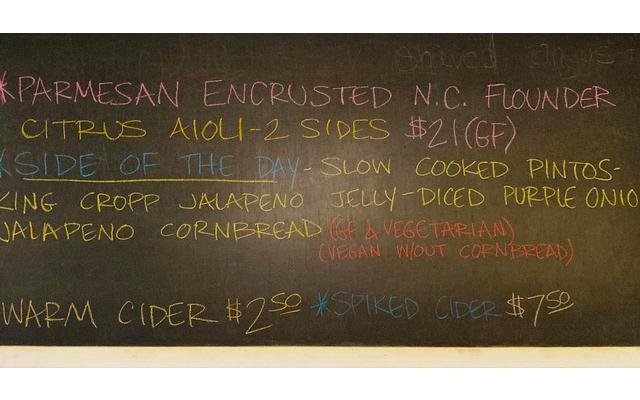 shaved angus
*PARMESAN ENCRUSTED N.C. FLOUNDER
CITRUS AIOLI-2 SIDES $21(GF)
*SIDE OF THE DAY-SLOW COOKED PINTOS-
KING CROPP JALAPENO JELLY-DICED PURPLE ONIO
JALAPENO CORNBREAD (GF & VEGETARIAN)
(VEGAN W/OUT CORNBREAD)
WARM CIDER $2.50 *SPIKED CIDER $7.50